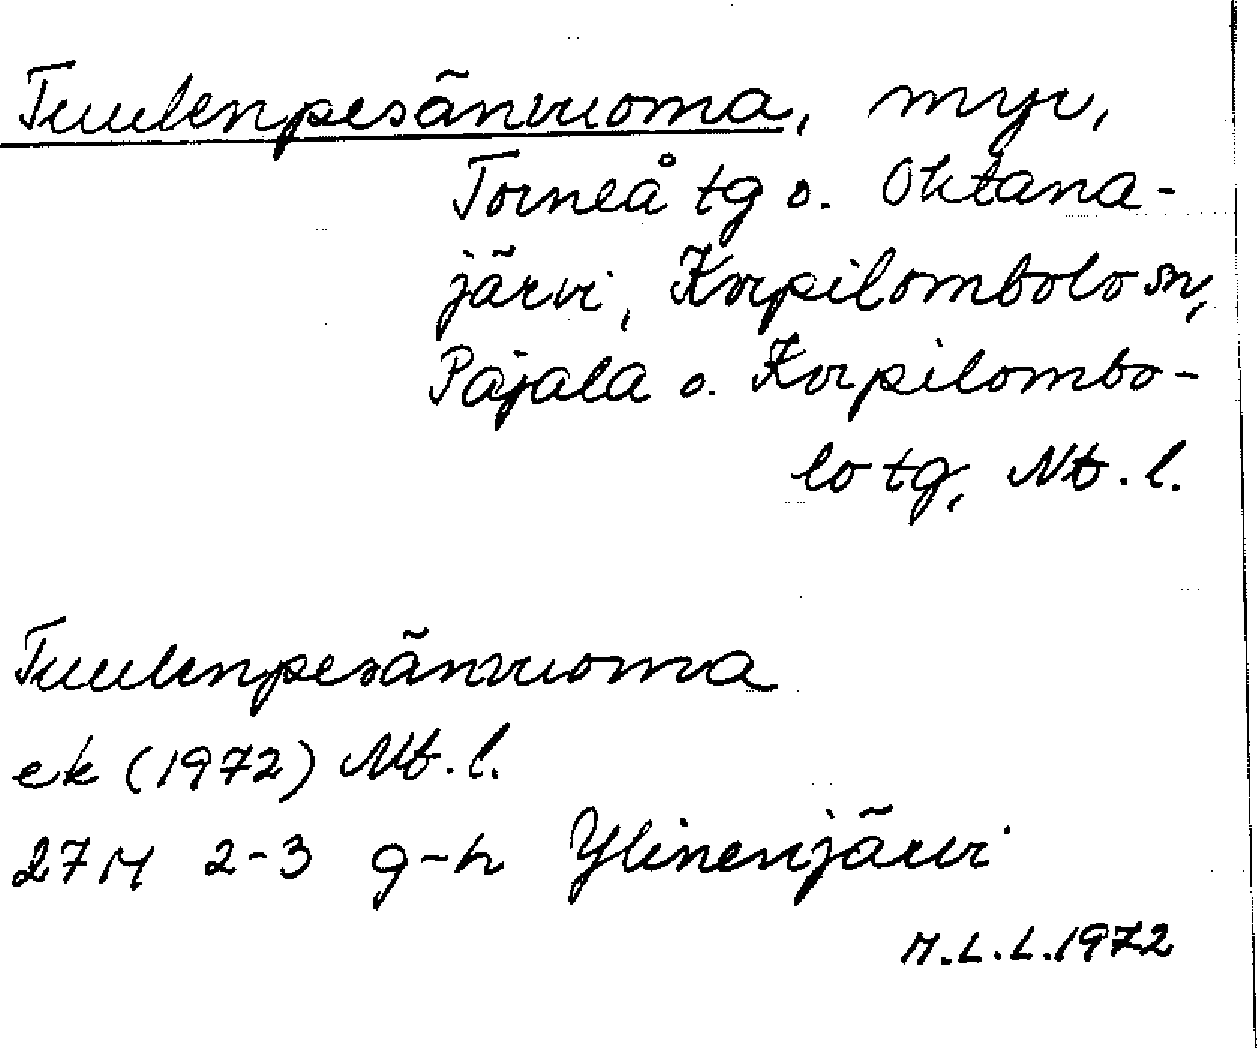 Tuulenpesänvuoma, myr,
Torneå tg o. Ohtana-
järvi, Korpilombolo sn,
Pajala o. Korpilombo-
lo tg, Nb. l.
Tuulenpesänvuoma
ek (1972) Nb. l.
27M 2-3 g-h Ylinenjärvi
M.L.L.1972